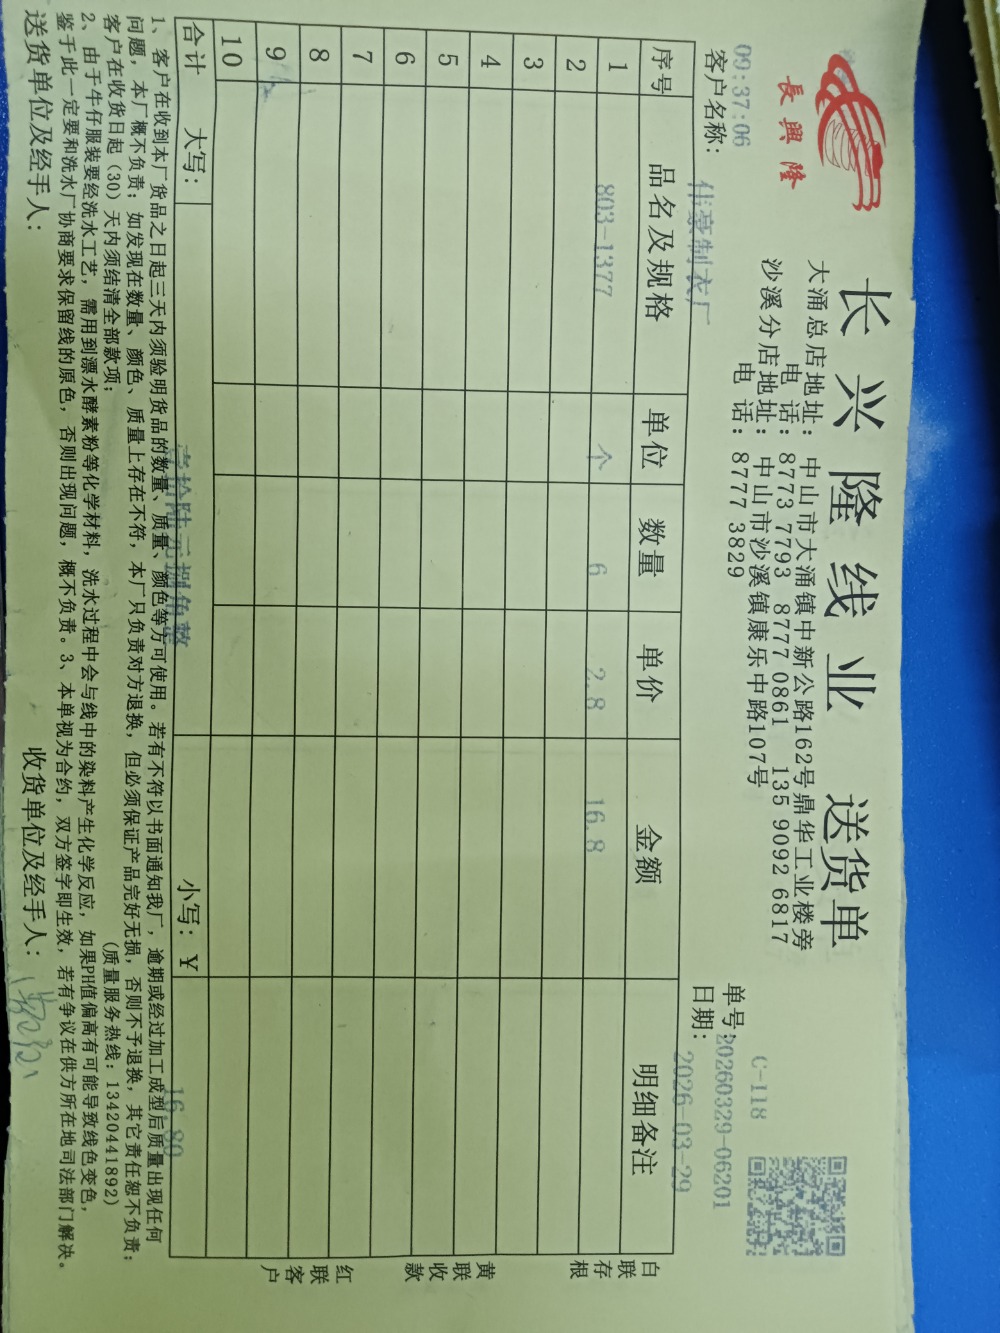 長興隆
长兴隆线业 送货单
大涌总店地址：中山市大涌镇中新公路162号鼎华工业楼旁
电 话：8773 7793 8777 0861 135 9092 6817
沙溪分店地址：中山市沙溪镇康乐中路107号
电 话：8777 3829
C-118
09:37:06
单号：20260329-06201
客户名称： 伟豪制衣厂
日期：2026-03-29
序号 品名及规格 单位 数量 单价 金额 明细备注
1 803-1377 个 6 2.8 16.8
2
3
4
5
6
7
8
9
10
合计 大写： 壹拾陆元捌角整 小写：￥ 16.80
白联存根
黄联收款
红联客户
1、客户在收到本厂货品之日起三天内须验明货品的数量、质量、颜色等方可使用。若有不符以书面通知我厂，逾期或经过加工成型后质量出现任何
问题，本厂概不负责；如发现在数量、颜色、质量上存在不符，本厂只负责对方退换，但必须保证产品完好无损，否则不予退换，其它责任恕不负责；
客户在收货日起（30）天内须结清全部款项； (质量服务热线：13420441892)
2、由于牛仔服装要经洗水工艺，需用到漂水酵素粉等化学材料，洗水过程中会与线中的染料产生化学反应，如果PH值偏高有可能导致线色变色，
鉴于此一定要和洗水厂协商要求保留线的原色，否则出现问题，概不负责。3、本单视为合约，双方签字即生效，若有争议在供方所在地司法部门解决。
送货单位及经手人： 收货单位及经手人：